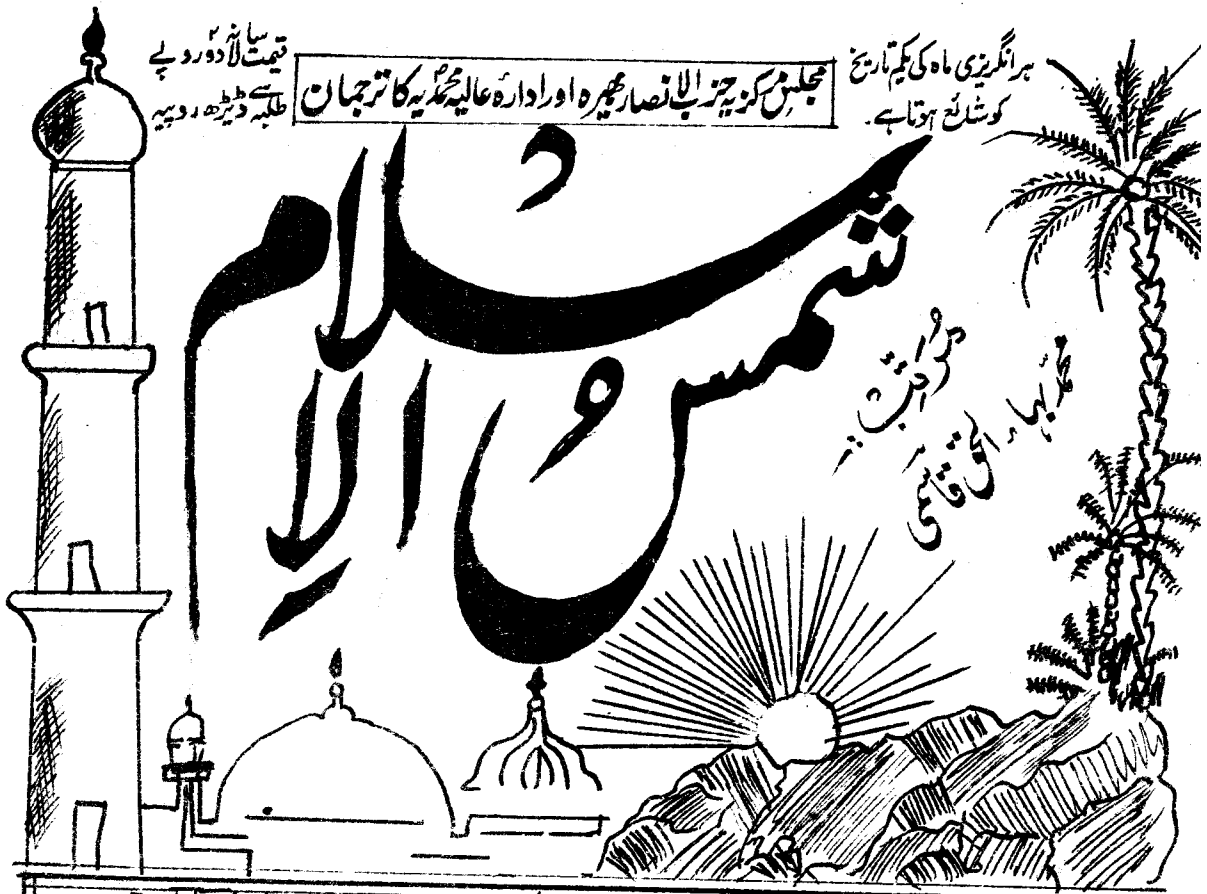 ہر انگریزی ماہ کی یکم تاریخ
کو شائع ہوتا ہے۔
مجلس مرکزیہ حزب الانصار بھیرہ اور ادارۂ عالیہ محمدیہ کا ترجمان
قیمت سالانہ دو روپے
طلبہ سے ڈیڑھ روپیہ
شمس الاسلام
مُرتّب:
محمد بہاء الحق قاسمی